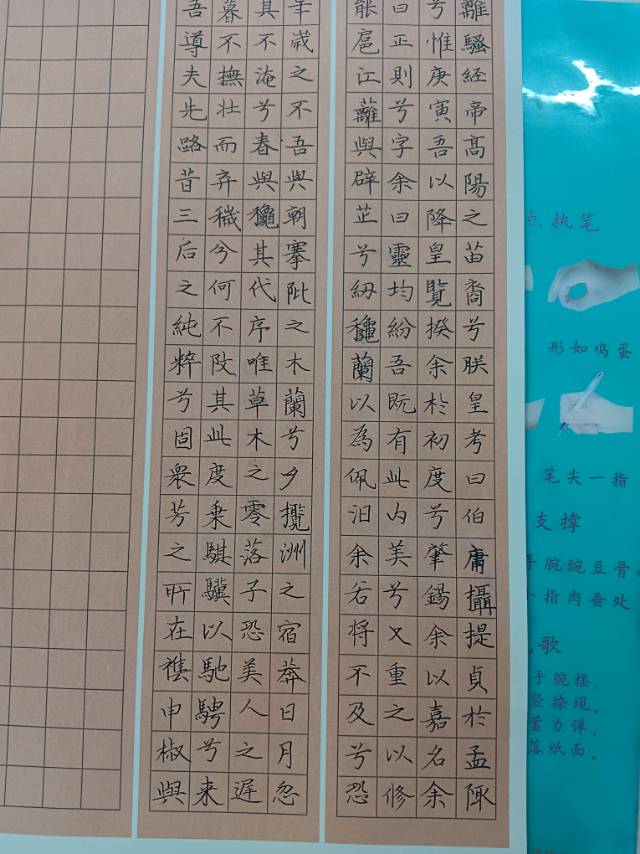 離騷經帝高陽之苗裔兮朕皇考曰伯庸攝提貞於孟陬
兮惟庚寅吾以降皇覽揆余於初度兮肇錫余以嘉名余
曰正則兮字余曰靈均紛吾既有此內美兮又重之以修
能扈江蘺與辟芷兮紉龝蘭以為佩汩余若將不及兮恐
年歲之不吾與朝搴阰之木蘭兮夕攬洲之宿莽日月忽
其不淹兮春與龝其代序唯草木之零落子恐美人之遲
暮不撫壯而弃穢兮何不改其此度乘騏驥以馳騁兮来
吾導夫先路昔三后之純粹兮固衆芳之所在襍申椒與
点执笔
形如鸡蛋
笔尖一指
支撑
手腕豌豆骨。
小指肉垂处
歌
手腕摆,
竖捺现。
蓄力弹,
落纸面。